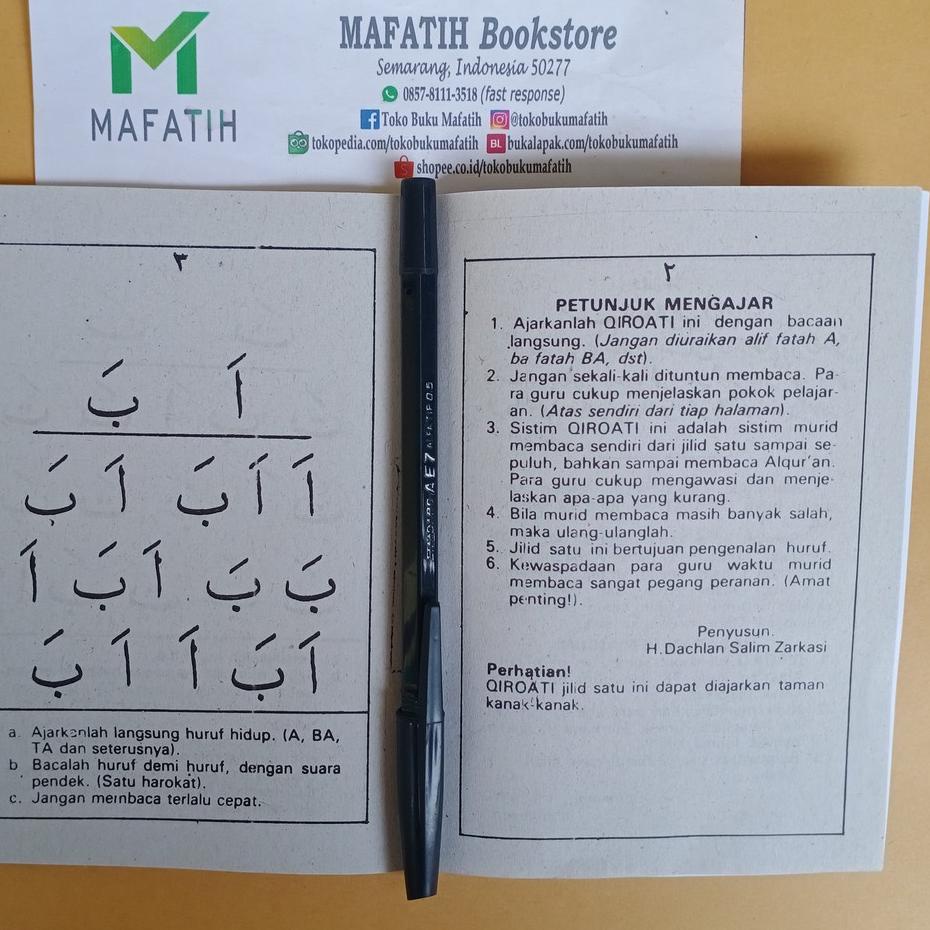 MAFATIH
MAFATIH Bookstore
Semarang, Indonesia 50277
0857-8111-3518 (fast response)
Toko Buku Mafatih @tokobukumafatih
tokopedia.com/tokobukumafatih BL bukalapak.com/tokobukumafatih
shopee.co.id/tokobukumafatih
٢
PETUNJUK MENGAJAR
1. Ajarkanlah QIROATI ini dengan bacaan
langsung. (Jangan diuraikan alif fatah A,
ba fatah BA, dst).
2. Jangan sekali-kali dituntun membaca. Pa-
ra guru cukup menjelaskan pokok pelajar-
an. (Atas sendiri dari tiap halaman).
3. Sistim QIROATI ini adalah sistim murid
membaca sendiri dari jilid satu sampai se-
puluh, bahkan sampai membaca Alqur'an.
Para guru cukup mengawasi dan menje-
laskan apa-apa yang kurang.
4. Bila murid membaca masih banyak salah,
maka ulang-ulanglah.
5. Jilid satu ini bertujuan pengenalan huruf.
6. Kewaspadaan para guru waktu murid
membaca sangat pegang peranan. (Amat
penting!).
Penyusun.
H.Dachlan Salim Zarkasi
Perhatian!
QIROATI jilid satu ini dapat diajarkan taman
kanak-kanak.
٣
اَ بَ
اَ اَ بَ اَ بَ
بَ بَ اَ بَ اَ
اَ بَ اَ اَ بَ
a. Ajarkanlah langsung huruf hidup. (A, BA,
TA dan seterusnya).
b Bacalah huruf demi huruf, dengan suara
pendek. (Satu harokat).
c. Jangan membaca terlalu cepat.
AE7